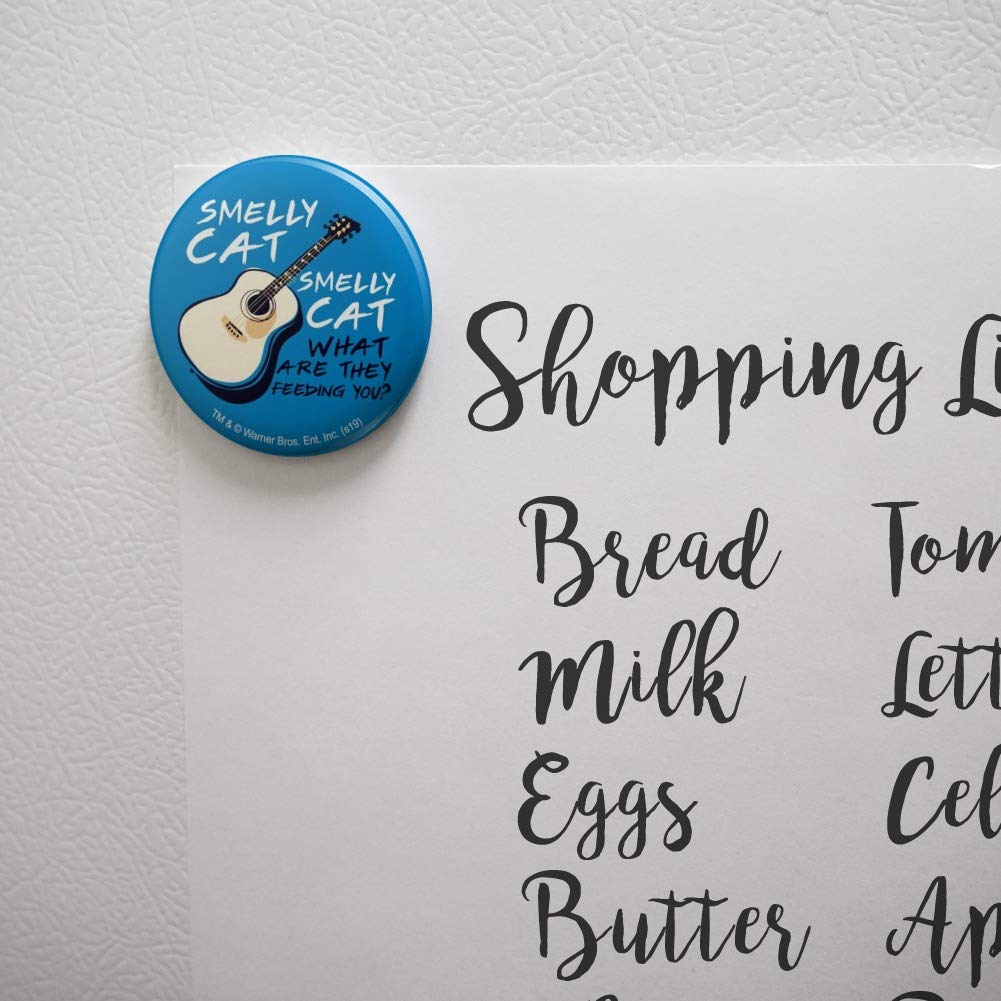 SMELLY
CAT
SMELLY
CAT
WHAT
ARE THEY
FEEDING YOU?
TM & © Warner Bros. Ent. Inc. (s19)
Shopping Li
Bread Tom
Milk Lett
Eggs Cel
Butter Ap